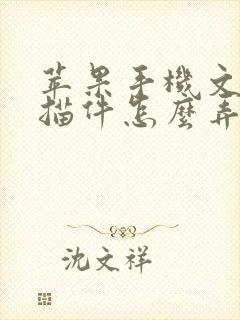 苹果手機文
描件怎麼弄
沈文祥